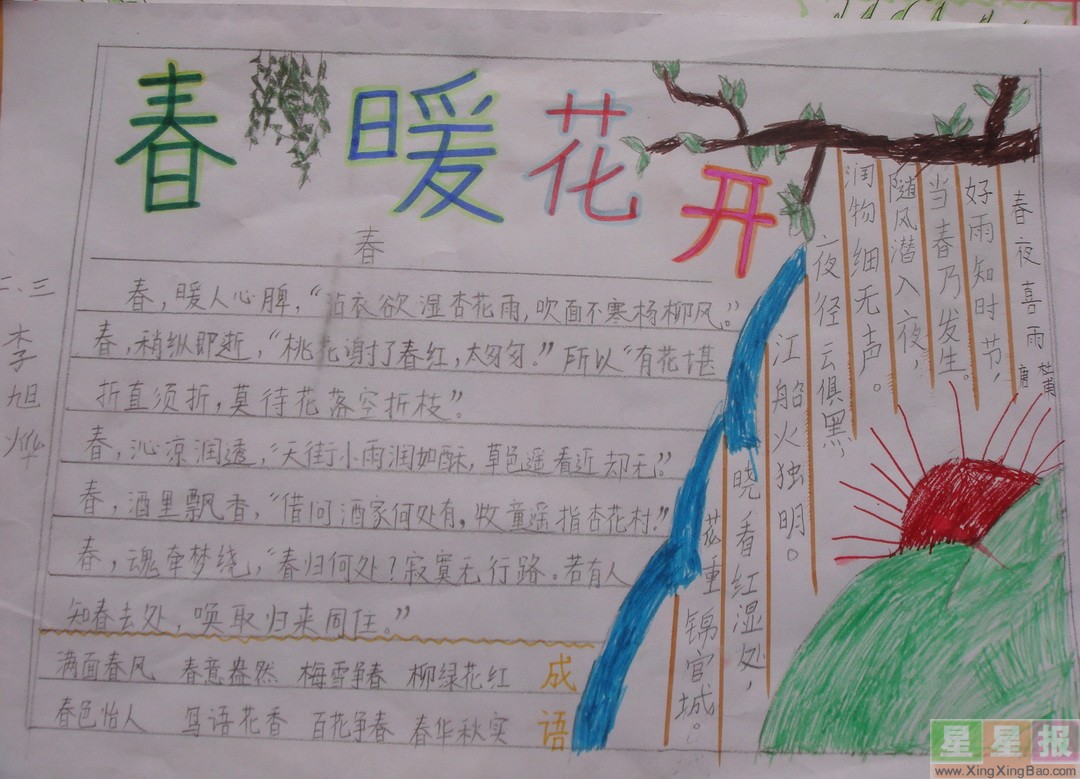 春暖花开
春
春，暖人心脾，“沾衣欲湿杏花雨，吹面不寒杨柳风。”
春，稍纵即逝，“桃花谢了春红，太匆匆。”所以“有花堪
折直须折，莫待花落空折枝”。
春，沁凉润透，“天街小雨润如酥，草色遥看近却无。”
春，酒里飘香，“借问酒家何处有，牧童遥指杏花村！”
春，魂牵梦绕，“春归何处？寂寞无行路。若有人
知春去处，唤取归来同住。”
满面春风 春意盎然 梅雪争春 柳绿花红
春色怡人 鸟语花香 百花争春 春华秋实
成语
春夜喜雨
唐 杜甫
好雨知时节，
当春乃发生。
随风潜入夜，
润物细无声。
夜径云俱黑，
江船火独明。
晓看红湿处，
花重锦官城。
二、三
李旭烨
星星报
www.XingXingBao.com